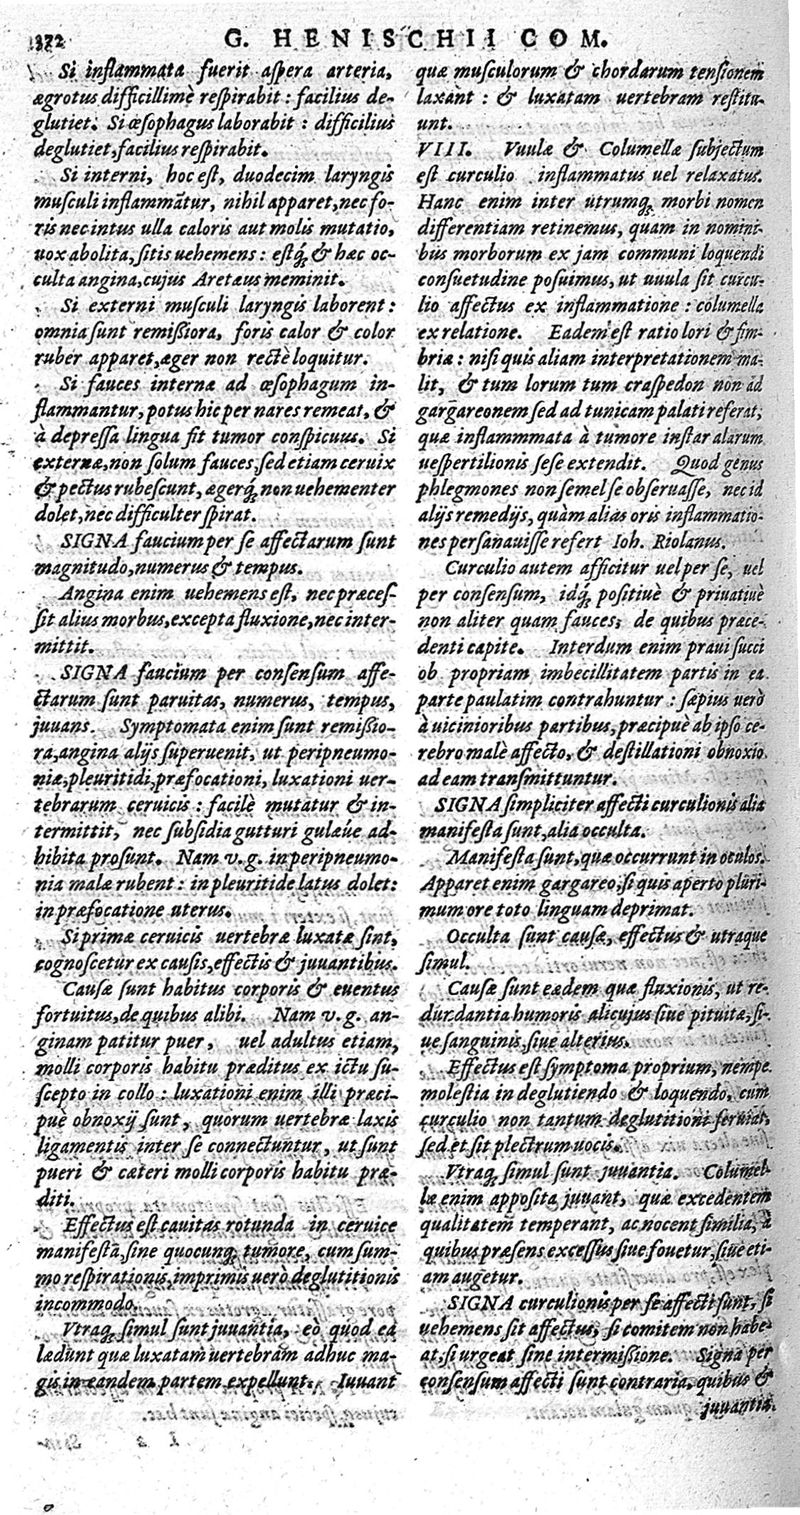 372
G. HENISCHII COM.
Si inflammata fuerit aſpera arteria,
ægrotus difficillimè reſpirabit : facilius de-
glutiet. Si œſophagus laborabit : difficilius
deglutiet, facilius reſpirabit.
Si interni, hoc eſt, duodecim laryngis
muſculi inflammātur, nihil apparet, nec fo-
ris nec intus ulla caloris aut molis mutatio,
uox abolita, ſitis uehemens : eſtq́, & hæc oc-
culta angina, cujus Aretæus meminit.
Si externi muſculi laryngis laborent :
omnia ſunt remißiora, foris calor & color
ruber apparet, æger non rectè loquitur.
Si fauces internæ ad œſophagum in-
flammantur, potus hic per nares remeat, &
à depreſſa lingua fit tumor conſpicuus. Si
externæ, non ſolum fauces, ſed etiam ceruix
& pectus rubeſcunt, ægerq́, non uehementer
dolet, nec difficulter ſpirat.
SIGNA faucium per ſe affectarum ſunt
magnitudo, numerus & tempus.
Angina enim uehemens eſt, nec præceſ-
ſit alius morbus, excepta fluxione, nec inter-
mittit.
SIGNA faucium per conſenſum affe-
ctarum ſunt paruitas, numerus, tempus,
juuans. Symptomata enim ſunt remißio-
ra, angina alijs ſuperuenit, ut peripneumo-
niæ, pleuritidi, præfocationi, luxationi uer-
tebrarum ceruicis : facilè mutatur & in-
termittit, nec ſubſidia gutturi gulæúe ad-
hibita proſunt. Nam v. g. in peripneumo-
nia malæ rubent : in pleuritide latus dolet:
in præfocatione uterus.
Si primæ ceruicis uertebræ luxatæ ſint,
cognoſcetur ex cauſis, effectis & juuantibus.
Cauſæ ſunt habitus corporis & euentus
fortuitus, de quibus alibi. Nam v. g. an-
ginam patitur puer, uel adultus etiam,
molli corporis habitu præditus ex ictu ſu-
ſcepto in collo : luxationi enim illi præci-
puè obnoxij ſunt, quorum uertebræ laxis
ligamentis inter ſe connectuntur, ut ſunt
pueri & cæteri molli corporis habitu præ-
diti.
Effectus eſt cauitas rotunda in ceruice
manifeſta, ſine quocunq; tumore, cum ſum-
mo reſpirationis, imprimis uerò deglutitionis
incommodo.
Vtraq; ſimul ſunt juuantia, eò quod ea
lædunt quæ luxatam uertebram adhuc ma-
gis in eandem partem expellunt. Iuuant
quæ muſculorum & chordarum tenſionem
laxant : & luxatam uertebram reſtitu-
unt.
VIII. Vuulæ & Columellæ ſubjectum
eſt curculio inflammatus uel relaxatus.
Hanc enim inter utrumq; morbi nomen
differentiam retinemus, quam in nomini-
bus morborum ex jam communi loquendi
conſuetudine poſuimus, ut uuula ſit curcu-
lio affectus ex inflammatione : columella
ex relatione. Eadem eſt ratio lori & fim-
briæ : niſi quis aliam interpretationem ma-
lit, & tum lorum tum craſpedon non ad
gargareonem ſed ad tunicam palati referat,
quæ inflammmata à tumore inſtar alarum
ueſpertilionis ſeſe extendit. Quod genus
phlegmones non ſemel ſe obſeruaſſe, nec id
alijs remedijs, quàm alias oris inflammatio-
nes perſanauiſſe refert Ioh. Riolanus.
Curculio autem afficitur uel per ſe, uel
per conſenſum, idq́, poſitiuè & priuatiuè
non aliter quam fauces, de quibus præce-
denti capite. Interdum enim praui ſucci
ob propriam imbecillitatem partis in ea
parte paulatim contrahuntur : ſæpius uerò
à uicinioribus partibus, præcipuè ab ipſo ce-
rebro malè affecto, & deſtillationi obnoxio
ad eam tranſmittuntur.
SIGNA ſimpliciter affecti curculionis alia
manifeſta ſunt, alia occulta.
Manifeſta ſunt, quæ occurrunt in oculos.
Apparet enim gargareo, ſi quis aperto pluri-
mum ore toto linguam deprimat.
Occulta ſunt cauſæ, effectus & utraque
ſimul.
Cauſæ ſunt eædem quæ fluxionis, ut re-
dundantia humoris alicujus ſiue pituitæ, ſi-
ue ſanguinis, ſiue alterius.
Effectus eſt ſymptoma proprium, nempe
moleſtia in deglutiendo & loquendo, cum
curculio non tantum deglutitioni ſeruiat,
ſed et ſit plectrum uocis.
Vtraq; ſimul ſunt juuantia. Columel-
læ enim appoſita juuant, quæ excedentem
qualitatem temperant, ac nocent ſimilia, à
quibus præſens exceſſus ſiue fouetur, ſiue eti-
am augetur.
SIGNA curculionis per ſe affecti ſunt, ſi
uehemens ſit affectus, ſi comitem non habe-
at, ſi urgeat ſine intermißione. Signa per
conſenſum affecti ſunt contraria, quibus &
juuantia.